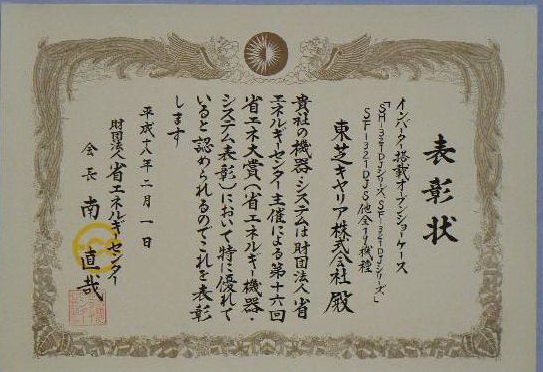 表彰状
インバーター搭載オープンショーケース
「SH-321DJシリーズ SF-321DJシリーズ」
SF-321DJS他全11機種
東芝キヤリア株式会社 殿
貴社の機器・システムは財団法人 省
エネルギーセンター主催による第十六回
省エネ大賞(省エネルギー機器・
システム表彰)において特に優れて
いると認められるのでこれを表彰
します
平成十八年二月一日
財団法人 省エネルギーセンター
会長 南 直哉